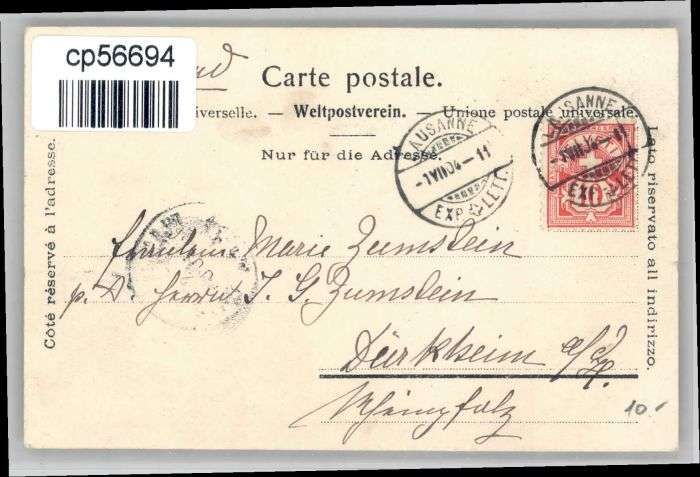 cp56694
Carte postale.
iverselle. — Weltpostverein. — Unione postale universale.
Nur für die Adresse.
Côté réservé à l'adresse.
Lato riservato all indirizzo.
LAUSANNE
-1 VII 04-11
EXP. LETT.
LAUSANNE
-1 VII 04-11
EXP. LETT.
10
Fräulein Marie Zumstein
p. A. Herrn J. G. Zumstein
Dürkheim a/H.
Rheinpfalz
10